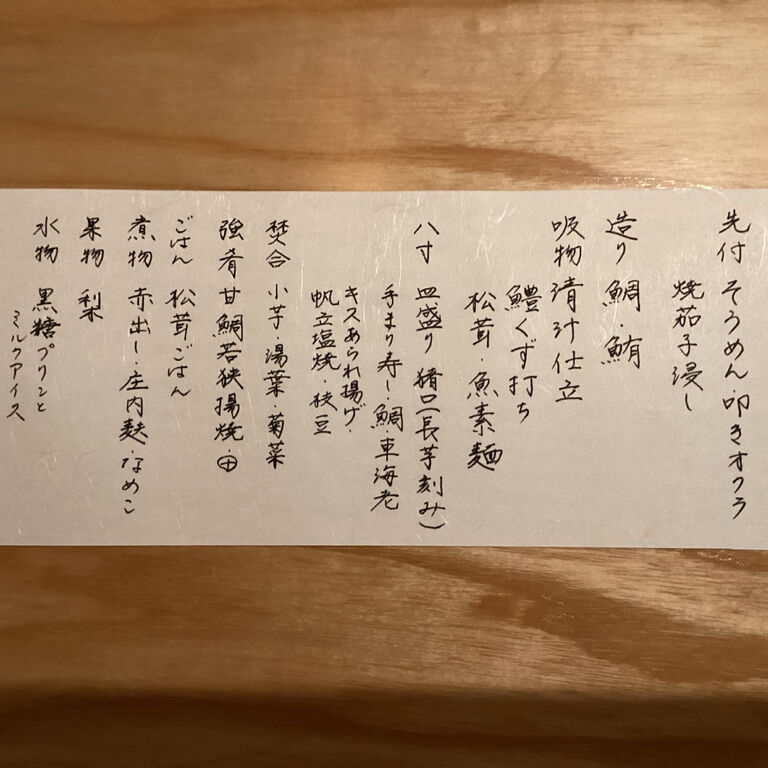 先付 そうめん・叩きオクラ
焼茄子浸し
造り 鯛・鮪
吸物 清汁仕立
鱧くず打ち
松茸・魚素麺
八寸 皿盛り 猪口(長芋刻み)
手まり寿し・鯛車海老
キスあられ揚げ・
帆立塩焼・枝豆
焚合 小芋・湯葉・菊菜
強肴 甘鯛若狭揚焼・
ごはん 松茸ごはん
煮物 赤出し・庄内麩・なめこ
果物 梨
水物 黒糖プリンと
ミルクアイス